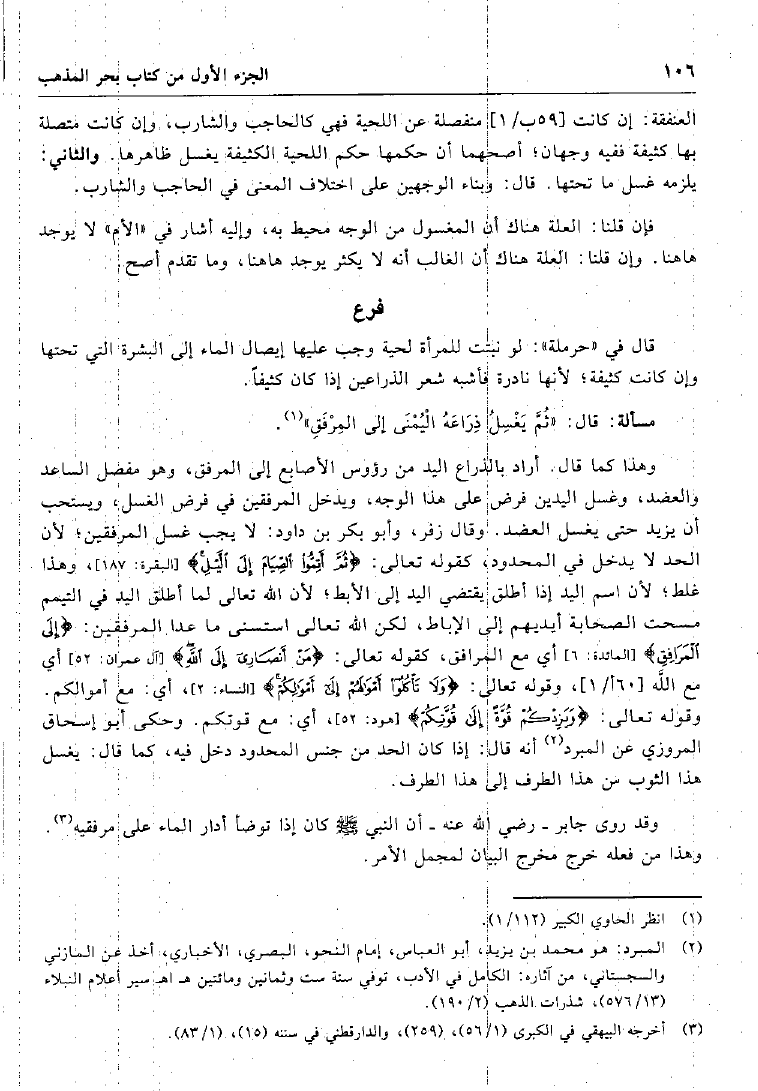 ١٠٦ الجزء الأول من كتاب بحر المذهب
العنفقة: إن كانت [٥٩ب/١] منفصلة عن اللحية فهي كالحاجب والشارب، وإن كانت متصلة
بها كثيفة ففيه وجهان؛ أصحهما أن حكمها حكم اللحية الكثيفة يغسل ظاهرها. والثاني:
يلزمه غسل ما تحتها. قال: وبناء الوجهين على اختلاف المعنى في الحاجب والشارب.
فإن قلنا: العلة هناك أن المغسول من الوجه محيط به، وإليه أشار في «الأم» لا يوجد
هاهنا. وإن قلنا: العلة هناك أن الغالب أنه لا يكثر يوجد هاهنا، وما تقدم أصح.
فرع
قال في «حرملة»: لو نبتت للمرأة لحية وجب عليها إيصال الماء إلى البشرة التي تحتها
وإن كانت كثيفة؛ لأنها نادرة فأشبه شعر الذراعين إذا كان كثيفاً.
مسألة: قال: «ثُمَّ يَغْسِلُ ذِرَاعَهُ الْيُمْنَى إلى المِرْفَقِ»(١).
وهذا كما قال. أراد بالذراع اليد من رؤوس الأصابع إلى المرفق، وهو مفصل الساعد
والعضد، وغسل اليدين فرض على هذا الوجه، ويدخل المرفقين في فرض الغسل؛ ويستحب
أن يزيد حتى يغسل العضد. وقال زفر، وأبو بكر بن داود: لا يجب غسل المرفقين؛ لأن
الحد لا يدخل في المحدود، كقوله تعالى: ﴿ثُمَّ أَتِمُّوا الصِّيَامَ إِلَى اللَّيْلِ﴾ [البقرة: ١٨٧]، وهذا
غلط؛ لأن اسم اليد إذا أطلق يقتضي اليد إلى الأبط؛ لأن الله تعالى لما أطلق اليد في التيمم
مسحت الصحابة أيديهم إلى الإباط، لكن الله تعالى استسنى ما عدا المرفقين: ﴿إِلَى
الْمَرَافِقِ﴾ [المائدة: ٦] أي مع المرافق، كقوله تعالى: ﴿مَنْ أَنصَارِي إِلَى اللَّهِ﴾ [آل عمران: ٥٢] أي
مع اللَّه [٦٠أ/١]، وقوله تعالى: ﴿وَلَا تَأْكُلُوا أَمْوَالَهُمْ إِلَى أَمْوَالِكُمْ﴾ [النساء: ٢]، أي: مع أموالكم.
وقوله تعالى: ﴿وَيَزِدْكُمْ قُوَّةً إِلَى قُوَّتِكُمْ﴾ [هود: ٥٢]، أي: مع قوتكم. وحكى أبو إسحاق
المروزي عن المبرد(٢) أنه قال: إذا كان الحد من جنس المحدود دخل فيه، كما قال: يغسل
هذا الثوب من هذا الطرف إلى هذا الطرف.
وقد روى جابر ـ رضي الله عنه ـ أن النبي ﷺ كان إذا توضأ أدار الماء على مرفقيه(٣).
وهذا من فعله خرج مخرج البيان لمجمل الأمر.
(١) انظر الحاوي الكبير (١١٢/١).
(٢) المبرد: هو محمد بن يزيد، أبو العباس، إمام النحو، البصري، الأخباري، أخذ عن المازني
والسجستاني، من آثاره: الكامل في الأدب، توفي سنة ست وثمانين ومائتين هـ اهـ سير أعلام النبلاء
(٥٧٦/١٣)، شذرات الذهب (١٩٠/٢).
(٣) أخرجه البيهقي في الكبرى (٥٦/١)، (٢٥٩)، والدارقطني في سننه (١٥)، (٨٣/١).